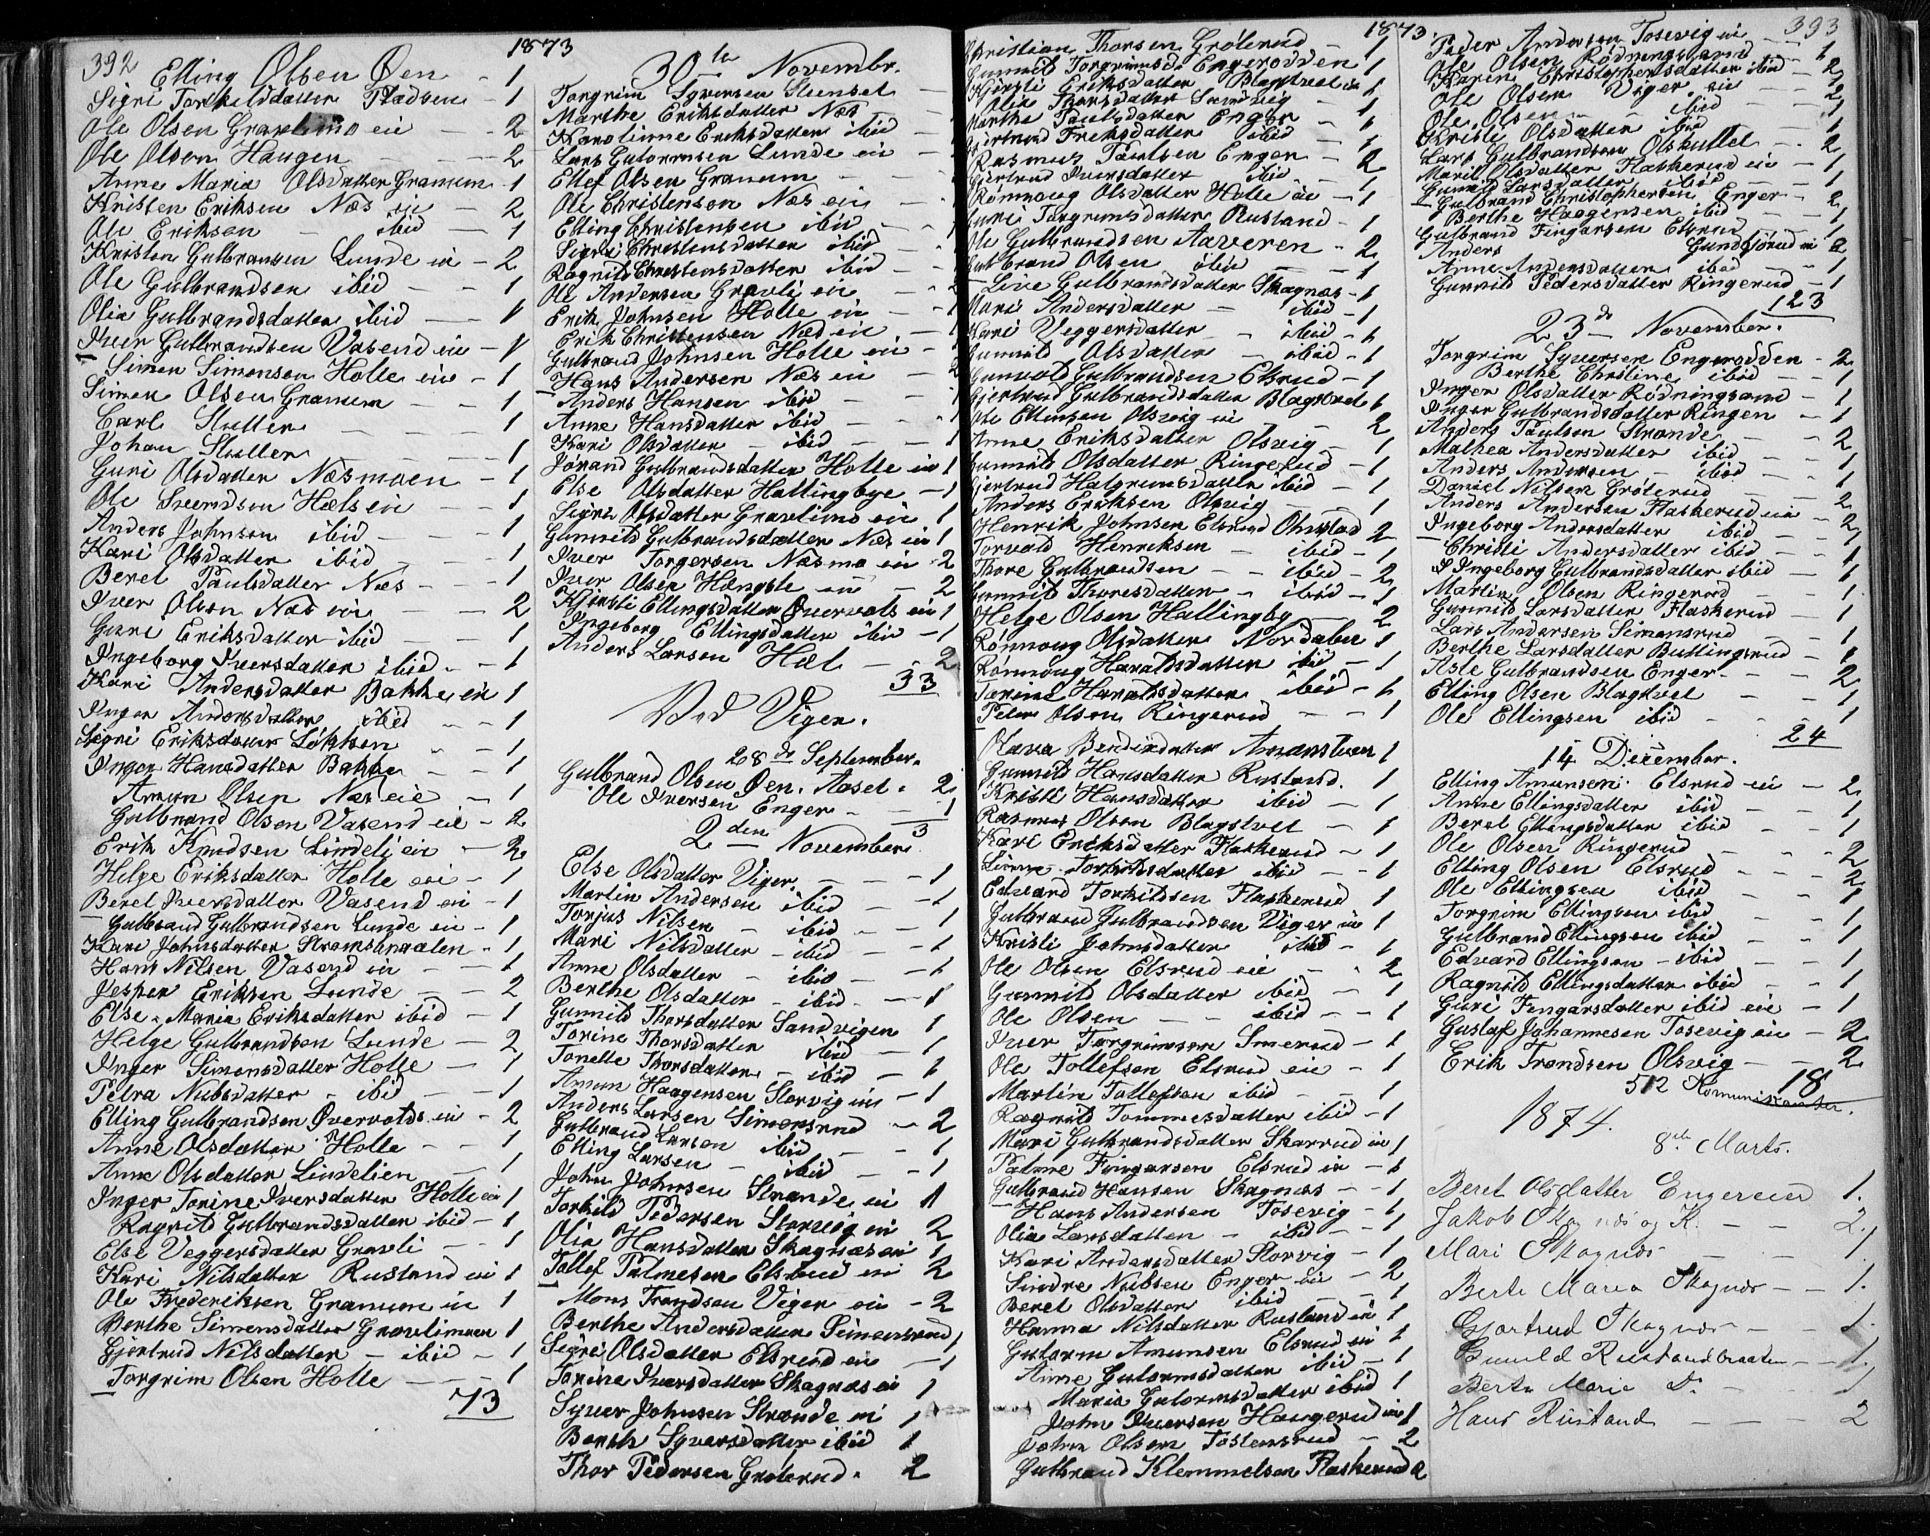 392
1873
Elling Olsen Øen - 1
Sigri Torkildatter Pladsen - 1
Ole Olsen Gravlimo eie - 2
Ole Olsen Haugen - 2
Anne Maria Olsdatter Granum - 1
Kristen Eriksen Næs eie - 2
Ole Eriksen - ibid - 1
Kristen Gulbransen Lunde eie - 2
Ole Gulbrandsen ibid - 1
Olia Gulbrandsdatter ibid - 1
Iver Gulbrandsen Vasend eie - 1
Simen Simensen Holle eie - 1
Simen Olsen Granum - 1
Carl Muller - 1
Johan Muller - 1
Guri Olsdatter Næsmoen - 1
Ole Svendsen Hæls eie - 1
Anders Johnsen ibid - 1
Kari Olsdatter ibid - 1
Beret Paulsdatter Næs - 1
Iver Olsen Næs eie - 2
Guri Eriksdatter ibid - 1
Ingeborg Iversdatter ibid - 1
Kari Andersdatter Bakke eie 1
Inger Andersdatter ibid - 1
Sigri Eriksdatter Løkken - 1
Inger Hansdatter Bakke - 1
Amun Olsen Næs eie - 1
Gulbrand Olsen Vasend eie - 2
Erik Knudsen Lindeli eie - 2
Helge Eriksdatter Holle eie - 1
Beret Iversdatter Vasend eie - 1
Gulbrand Gulbrandsen Lunde eie - 1
Kari Johnsdatter Strømsbraaten - 1
Hans Nilsen Vasend eie - 1
Jesper Eriksen Lunde - 2
Else Maria Eriksdatter ibid - 1
Helge Gulbrandsen Lunde - 2
Inger Simensdatter Holle - 1
Petra Nubsdatter - ibid - 1
Elling Gulbrandsen Øvervolds eie - 2
Anne Olsdatter Holle - 1
Anne Olsdatter Lindelien - 1
Inger Torine Iversdatter Holle eie 1
Ragnild Gulbrandsdatter ibid - 1
Else Veggersdatter Gravli - 1
Kari Nilsdatter Rustand eie 1
Ole Frederiksen Granum eie 1
Berthe Simensdatter Gravlimoen 1
Gjertrud Nilsdatter - ibid - 1
Torgrim Olsen Holle - 1
73
30te Novembr.
Torgrim Syversen Steenset
Marthe Eriksdatter Næs
Karolinne Eriksdatter ibid
Lars Gulormsen Lunde eie
Ellef Olsen Granum
Ole Christensen Næs eie
Elling Christensen ibid
Sigri Christensdatter ibid
Ragnild Christensdatter ibid
Ole Andersen Gravli eie
Erik Johnsen Holle eie
Erik Christensen Næs eie
Gulbrand Johnsen Holle eie
Hans Andersen Næs eie
Anders Hansen ibid
Anne Hansdatter ibid
Kari Olsdatter - ibid - 1
Jørand Gulbrandsdatter Holle eie 1
Else Olsdatter Hallingbye - 1
Sigri Olsdatter Gravlimo eie 1
Gunnild Gulbrandsdatter Næs eie 1
Iver Torgersen Næsmo eie - 2
Iver Olsen Hængsle eie - 2
Kjersti Ellingsdatter Øvervols eie 1
Ingeborg Ellingsdatter ibid - 1
Anders Larsen Hæl - 2
33
Ved Viger.
28de September.
Gulbrand Olsen Øen. Aaset. 2
Ole Iversen Enger - 1
3
2den November
Else Olsdatter Viger. - 1
Martin Andersen ibid - 1
Torjus Nilsen - ibid - 1
Mari Nilsdatter - ibid - 1
Anne Olsdatter - ibid - 1
Berthe Olsdatter - ibid - 1
Gunnild Thorsdatter Sandvigen 1
Torine Thorsdatter ibid - 1
Tonette Thorsdatter - ibid - 1
Amun Haagensen Storvig eie - 1
Anders Larsen Simensrud - 2
Gulbrand Larsen ibid - 1
Elling Larsen - ibid - 1
John Johnsen Strande eie 1
Torkild Pedersen Storvig eie 2
Olia Hansdatter Skagnæs eie 1
Tollef Palmesen Elsrud eie 2
Mons Trondsen Viger eie - 2
Berthe Andersdatter Simensrud 1
Sigri Olsdatter Elsrud eie - 1
Torine Iversdatter Skagnæs eie 1
Syver Johnsen Strande eie 1
Berith Syversdatter ibid 1
Thor Pedersen Grøterud. 2
1873.
393
Christian Thorsen Grøterud - 1
Gunnild Torgrimsd. Engerodden 1
Kjersti Eriksdatter Blagstvet eie 1
Olia Thorsdatter Sandvig - 1
Marthe Paulsdatter Enger - 1
Gjertrud Friksdatter ibid - 1
Rasmus Paulsen Enger - 2
Gjertrud Iversdatter ibid. - 1
Rønnoug Olsdatter Holte eie - 1
Guri Torgrimsdatter Rustand - 1
Ole Gulbrandsen Aaveren - 2
Gulbrand Olsen ibid - 1
Live Gulbrandsdatter Skagnæs - 1
Mari Andersdatter - ibid - 1
Kari Veggersdatter - ibid - 1
Gunnild Olsdatter - ibid - 1
Gunvold Gulbrandsen Elsrud - 1
Gjertrud Gulbrandsdatter Blagstvet 1
Ole Ellensen Olsvig eie - 2
Anne Eriksdatter Olsvig - 1
Gunnild Olsdatter Ringerud - 1
Gjertrud Halgrimsdatter ibid - 1
Anders Eriksen Olsvig - 1
Henrik Johnsen Elsrud Ohnstad 2
Torvald Henriksen - ibid - 1
Thore Gulbrandsen - ibid - 2
Gunnild Thoresdatter - ibid - 1
Helge Olsen Hallingby - 2
Rønnoug Olsdatter Nordalen 1
Rønnoug Haraldsdatter ibid - 1
Torine Haraldsdatter ibid - 1
Peter Olsen Ringerud - 1
Olava Bendixdatter 1
Gunnild Hansdatter Rustand. 1
Kristi Hansdatter ibid - 1
Rasmus Olsen Blagstvet - 1
Kari Eriksdatter Flaskerud - 1
Torkildsdatter ibid - 1
Edvard Torkildsen Flaskerud 1
Gulbrand Gulbrandsen Viger eie 1
Kristi Johnsdatter ibid - 1
Ole Olsen Elsrud eie - 2
Gunnild Olsdatter ibid - 1
Ole Olsen - ibid - 1
Iver Torgrimsen Smerud - 1
Ole Tollefsen Elsrud eie - 1
Martin Tollefsen ibid - 1
Ragnild Tommesdatter ibid - 1
Mari Gulbrandsdatter Skarrud eie 1
Palme Fingarsen Elsrud eie - 1
Gulbrand Hansen Skagnæs - 1
Hans Andersen Tosevig - 1
Olia Larsdatter - ibid - 1
Kari Andersdatter Storvig - 1
Sindre Nubsen Enger eie - 2
Beret Olsdatter ibid - 1
Hanna Nilsdatter Rustand eie 1
Gulorm Amunsen Elsrud eie 1
Anne Gulormsdatter ibid - 1
Maria Gulormsdatter ibid 1
John Iversen Haugerud eie 1
John Olsen Tostensrud - 2
Gulbrand Klemmetsen Flaskerud 2
Peder Andersen Tosevig eie - 1
Ole Olsen Rødningsand - 2
Karen Christophersdatter ibid - 2
Ole Olsen Viger eie - 2
Ole Olsen - ibid - 1
Kristi Olsdatter ibid - 1
Lars Gulbrandsen Olskuttet - 2
Marit Olsdatter Flaskerud eie - 1
Gunild Larsdatter ibid - 1
Gulbrand Christophersen Enger - 2
Berthe Haagensen ibid - 1
Gulbrand Fingarsen Elsrud 1
Anders Gundersjørud eie 2
Anne Andersdatter ibid - 1
Gunnild Pedersdatter Ringerud - 1
123
23de November.
Torgrim Syversen Engerodden - 2
Berthe Christine ibid - 1
Inger Olsdatter Rødningsand - 1
Inger Gulbrandsdatter Ringen - 1
Anders Paulsen Strande - 2
Mathea Andersdatter ibid - 1
Anders Andersen - ibid - 1
Daniel Nilsen Grøterud - 1
Anders Andersen Flaskerud eie - 2
Ingeborg Andersdatter ibid - 2
Christi Andersdatter ibid - 1
Ingeborg Gulbrandsdatter ibid - 1
Martin Olsen Ringerud - 1
Gunnild Larsdatter Flaskerud - 1
Lars Andersen Simensrud - 1
Berthe Larsdatter Buttingsrud - 1
Asle Gulbrandsen Enger - 2
Elling Olsen Blagstvet - 1
Ole Ellingsen ibid - 1
24
14 Dicember.
Elling Amunsen Elsrud eie - 2
Anne Ellingsdatter ibid - 1
Beret Ellingsdatter ibid - 1
Ole Olsen Ringerud - 2
Elling Olsen Elsrud - 2
Ole Ellingsen ibid - 1
Torgrim Ellingsen ibid - 1
Gulbrand Ellingsen ibid - 1
Edvard Ellingsen - ibid - 1
Ragnild Ellingsdatter ibid - 1
Guri Fingarsdatter ibid eie - 1
Gustaf Johannesen Tosevig eie - 2
Erik Trondsen Olsvig - 2
18
512 Komunikanter.
1874.
8de Marts.
Beret Olsdatter Engereier 1.
Jakob Skagnæs og K. - 2.
Mari Skagnæs - 1
Berte Maria Skagnæs - 1.
Gjertrud Skagnæs - 1.
Gunild Rustandbraaten - 1.
Berte Marie Do - 1
Hans Rustand - 2